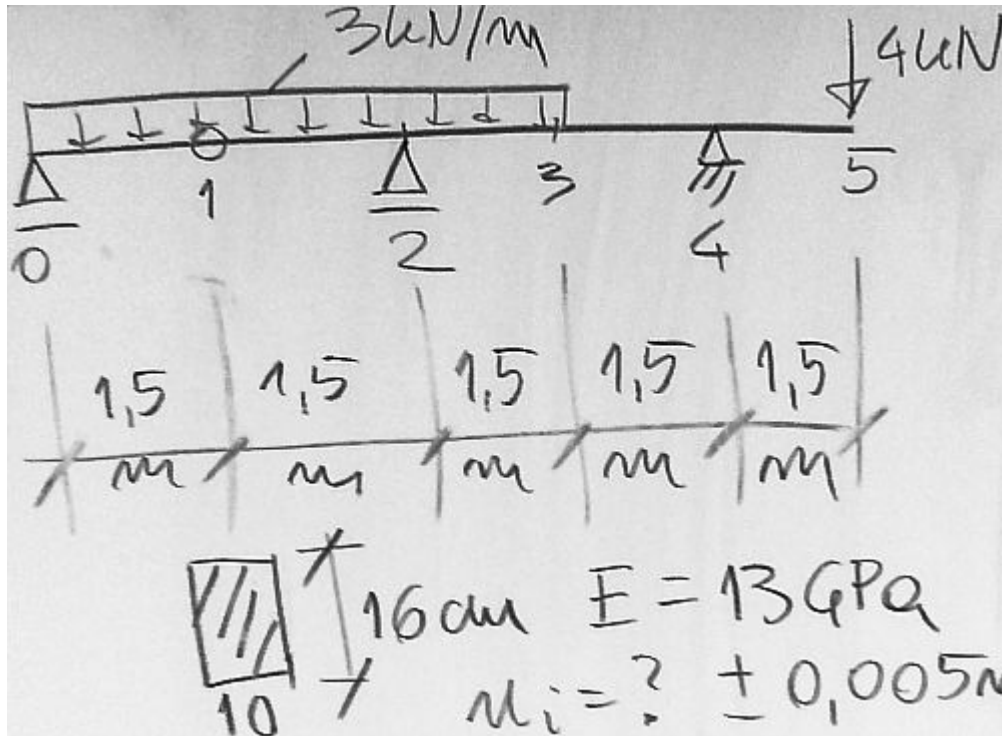 3kN/m
4kN
0 1 2 3 4 5
1,5 1,5 1,5 1,5 1,5
m m m m m
16 cm E = 13 GPa
10 ui = ? ± 0,005